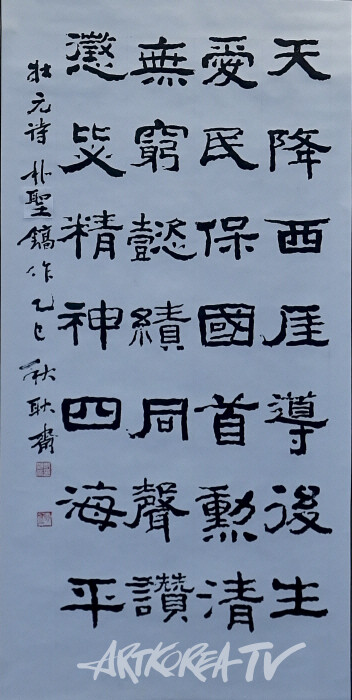 天降西厓導後生
愛民保國首勳清
無窮懿績同聲讚
懲毖精神四海平
壯元詩 朴聖鎬作 乙巳秋 耿齋
ARTKOREA-TV